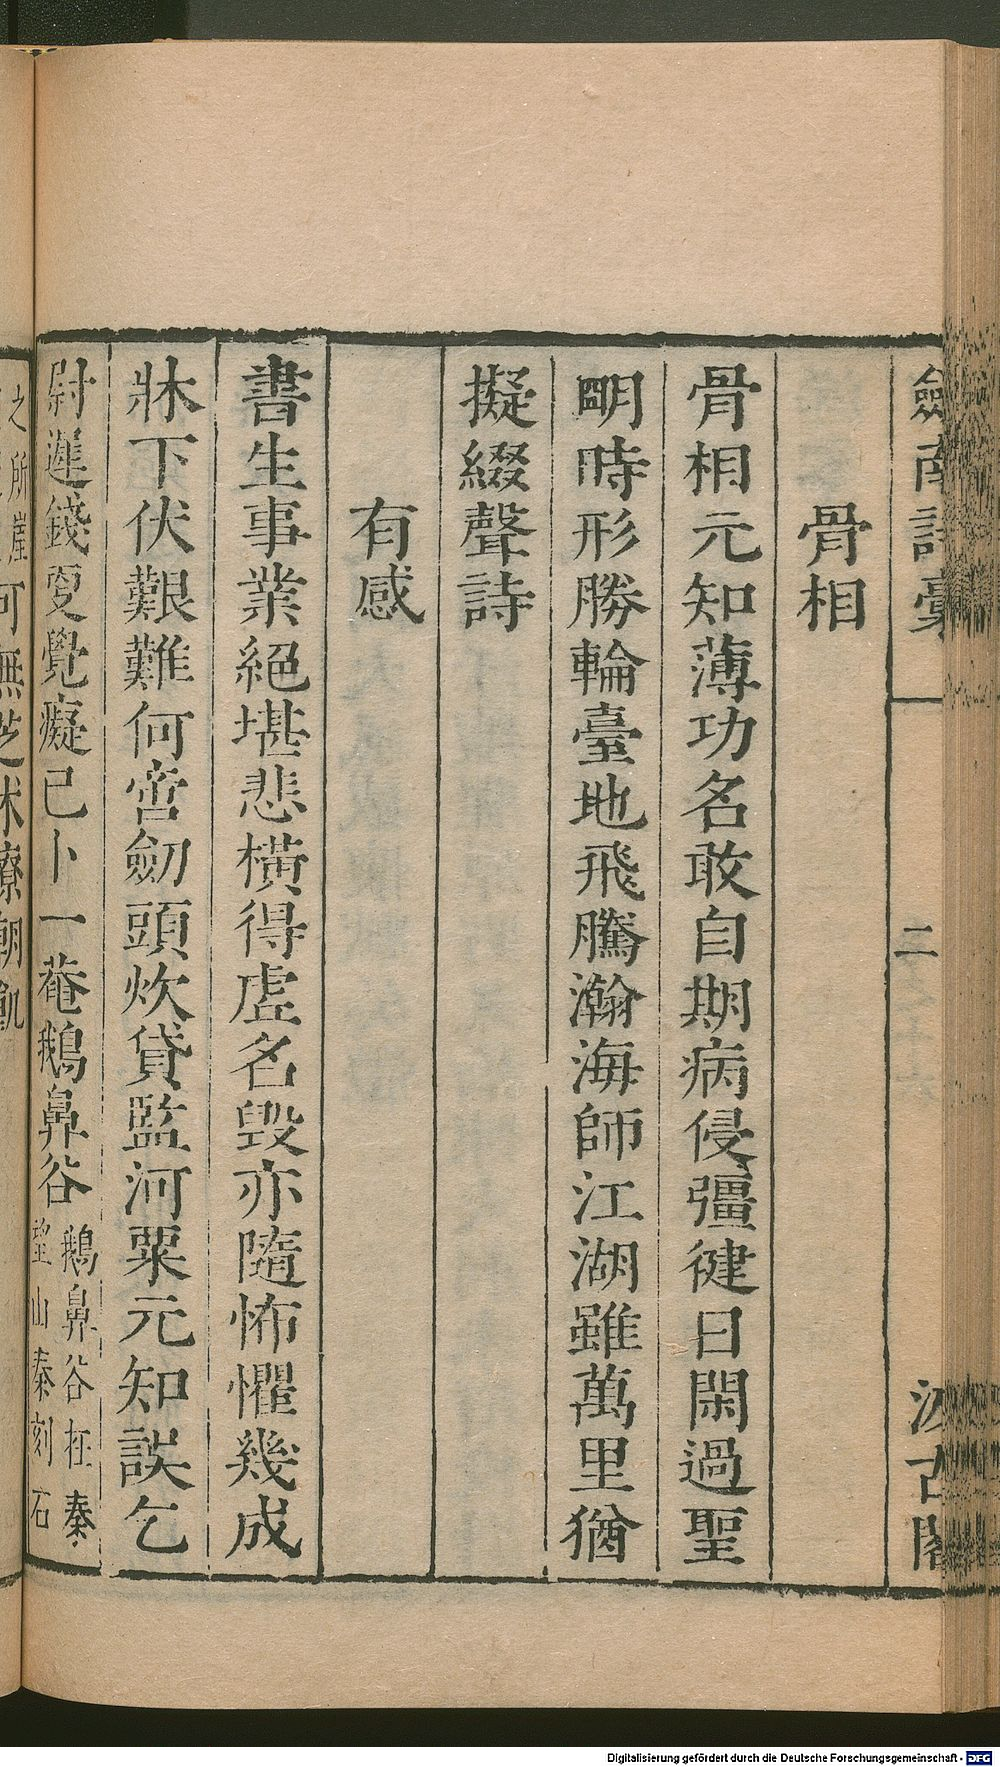 劒南詩藁
二
汲古閣
骨相
骨相元知薄功名敢自期病侵彊健日閑過聖
明時形勝輪臺地飛騰瀚海師江湖雖萬里猶
擬綴聲詩
有感
書生事業絕堪悲橫得虛名毀亦隨怖懼幾成
牀下伏艱難何啻劒頭炊貸監河粟元知誤乞
尉遲錢更覺癡已卜一菴鵝鼻谷鵝鼻谷在秦
望山秦刻石
之所崖
可無芝朮療朝飢
Digitalisierung gefördert durch die Deutsche Forschungsgemeinschaft - DFG